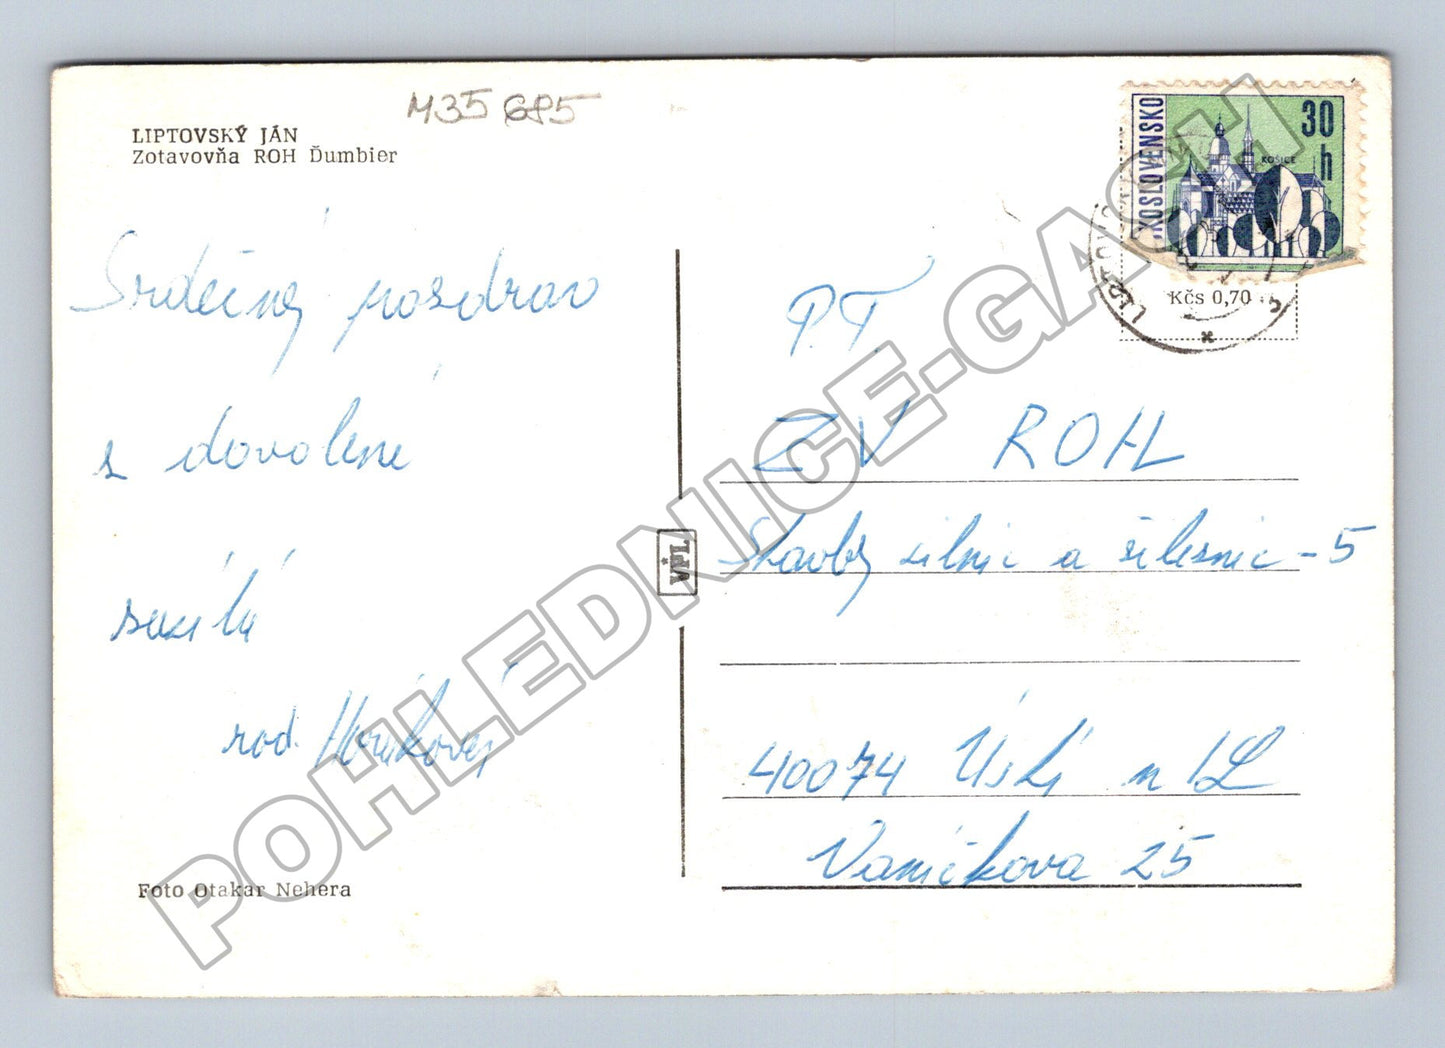 M35 GP5
LIPTOVSKÝ JÁN
Zotavovňa ROH Ďumbier
Srdečný pozdrav
z dovolené
zasílá
rod. Horákovej
Foto Otakar Nehera
VPL
KOSLOVENSKO
30
h
KOŠICE
Kčs 0,70
P.T.
ZV ROH
Stavby silnic a železnic - 5
40074 Ústí n/L
Vaníčkova 25
POHLEDNICE-GASH